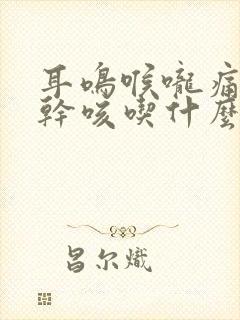 耳鳴喉嚨痛
幹咳喫什麼
昌尔熾